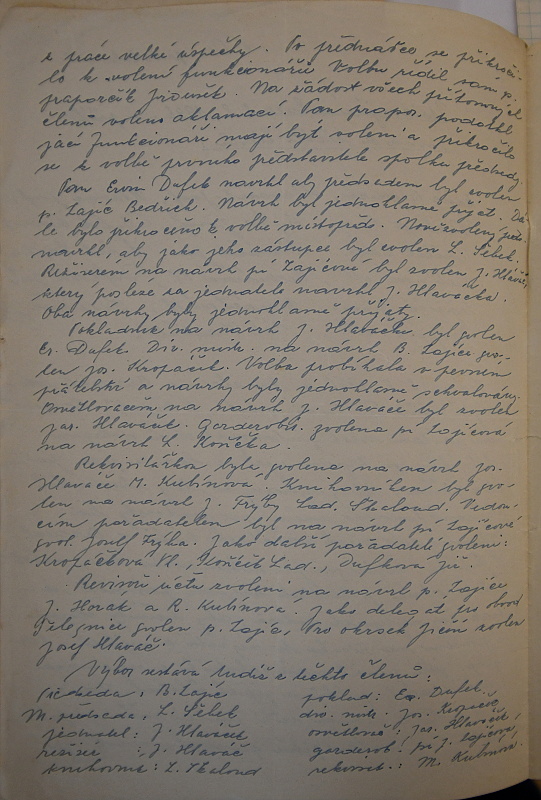 z práce velké úspěchy. Po přednášce se přikroči-
lo k volení funkcionářů. Volbu řídil sám p.
praporčík Jirousek. Na žádost všech přítomných
členů voleno aklamací. Pan prapor. podotkl
jací funkcionáři mají být voleni a přikročilo
se k volbě prvního představitele spolku předsedy.
Pan Ervín Dufek navrhl aby předsedem byl zvolen
p. Lajic Bedřich. Návrh byl jednohlasně přijat. Dá-
le bylo přikročeno k volbě místopřed. Novozvolený před.
navrhl, aby jako jeho zástupce byl zvolen L. Šebek.
Režiserem na návrh pí Lajicové byl zvolen J. Hlaváč,
který posléze za jednatele navrhl J. Hlaváčka.
Oba návrhy byly jednohlasně přijaty.
Pokladník na návrh J. Hlaváčka byl zvolen
Er. Dufek. Div. mistr. na návrh B. Lajice zvo-
len Jos. Kropáčik. Volba probíhala v pevném
přátelství a návrhy byly jednohlasně schvalovány.
Osvětlovačem na návrh J. Hlaváče byl zvolen
Jar. Hlaváček. Garderobié. zvolena pí Lajicová
na návrh L. Končka.
Rekvisitářkou byla zvolena na návrh Jos.
Hlaváče M. Kulínová. Knihovníkem byl zvo-
len na návrh J. Fryby Lad. Skaloud. Vedou-
cím pořadatelem byl na návrh pí Lajicové
zvol. Josef Fryba. Jako další pořadatelé zvoleni:
Kropáčkova Vl., Lad., Dufková Jiř.
Revisoři účtů zvoleni na návrh p. Lajice
J. Horák a R. Kulínova. Jako delegát pro obvod
zvolen p. Lajic, Pro okrsek Jičín zvolen
Josef Hlaváč.
Výbor sestává tudíž z těchto členů:
Předseda: B. Lajic poklad: Er. Dufek
M. předseda: L. Šebek div. mistr. Jos. Kropáčik
jednatel: J. Hlaváček osvětlovač: Jar. Hlaváček
režisér: J. Hlaváč garderob.: pí J. Lajicová
knihovník: L. Skaloud rekvisit.: M. Kulínová